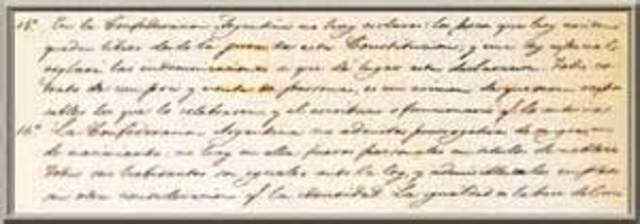 15º En la Confederacion Argentina no hay esclavos: los pocos que hoy existen
quedan libres desde la jura de esta Constitucion; y una ley especial
reglará las indemnizaciones a que dé lugar esta declaracion. Todo con-
trato de compra y venta de personas, es un crimen de que seran respon-
sables los que lo celebrasen, y el escribano o funcionario q.ᵉ lo autorice.
16º La Confederacion Argentina no admite prerogativas de sangre, ni
de nacimiento: no hay en ella fueros personales ni titulos de nobleza.
Todos sus habitantes son iguales ante la ley, y admisibles en los empleos
sin otra consideracion q.ᵉ la idoneidad. La igualdad es la base del